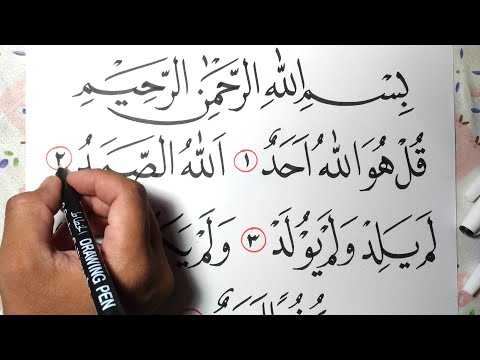 بِسْمِ اللهِ الرَّحْمٰنِ الرَّحِيْمِ
قُلْ هُوَ اللهُ اَحَدٌ ١ اَللهُ الصَّمَدُ ٢
لَمْ يَلِدْ وَلَمْ يُوْلَدْ ٣ وَلَمْ
الخطاط DRAWING PEN